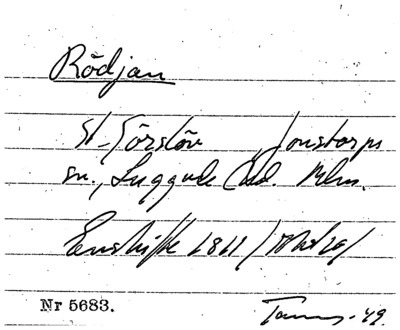 Rödjan
St. Görslöv Jonstorps
sn., Luggude hd. Mlm.
Enskifte 1811 /
Nr 5683.
-49